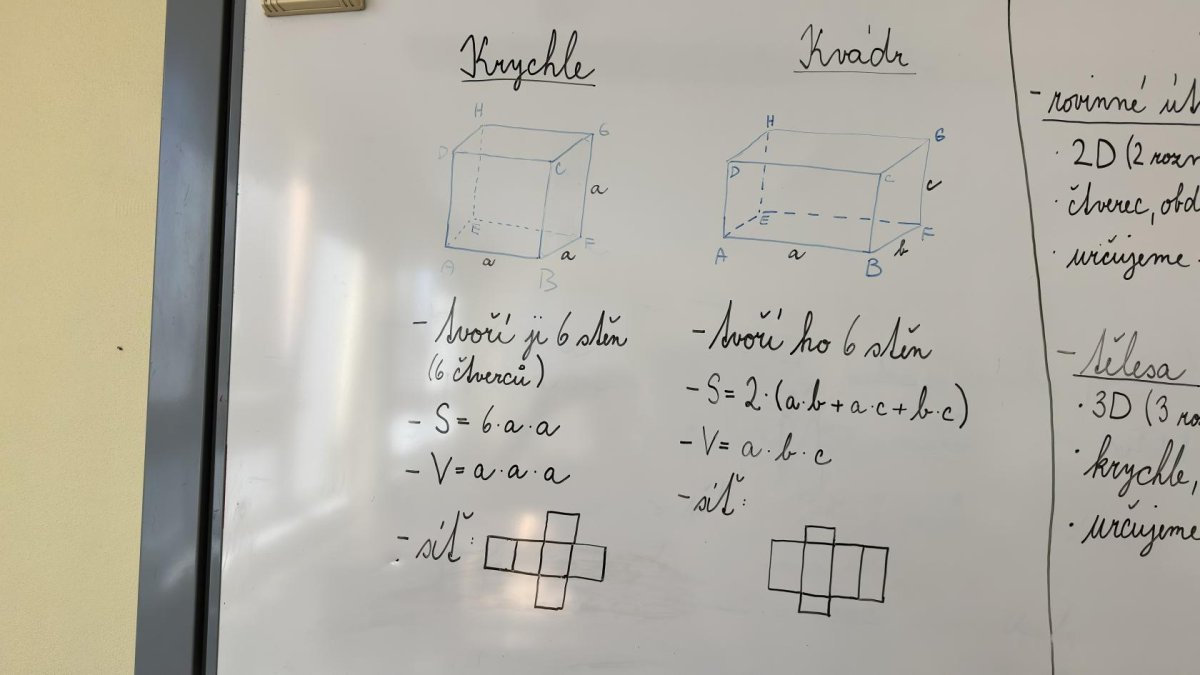 Krychle
H
G
D
C
a
E
F
A
a
a
B
- tvoří ji 6 stěn
(6 čtverců)
- S = 6·a·a
- V = a·a·a
- síť:
Kvádr
H
G
D
C
c
E
F
A
a
b
B
- tvoří ho 6 stěn
- S = 2·(a·b + a·c + b·c)
- V = a·b·c
- síť:
- rovinné
· 2D (2
· čtverec,
· určujeme
- tělesa
· 3D (3
· krychle,
· určujeme